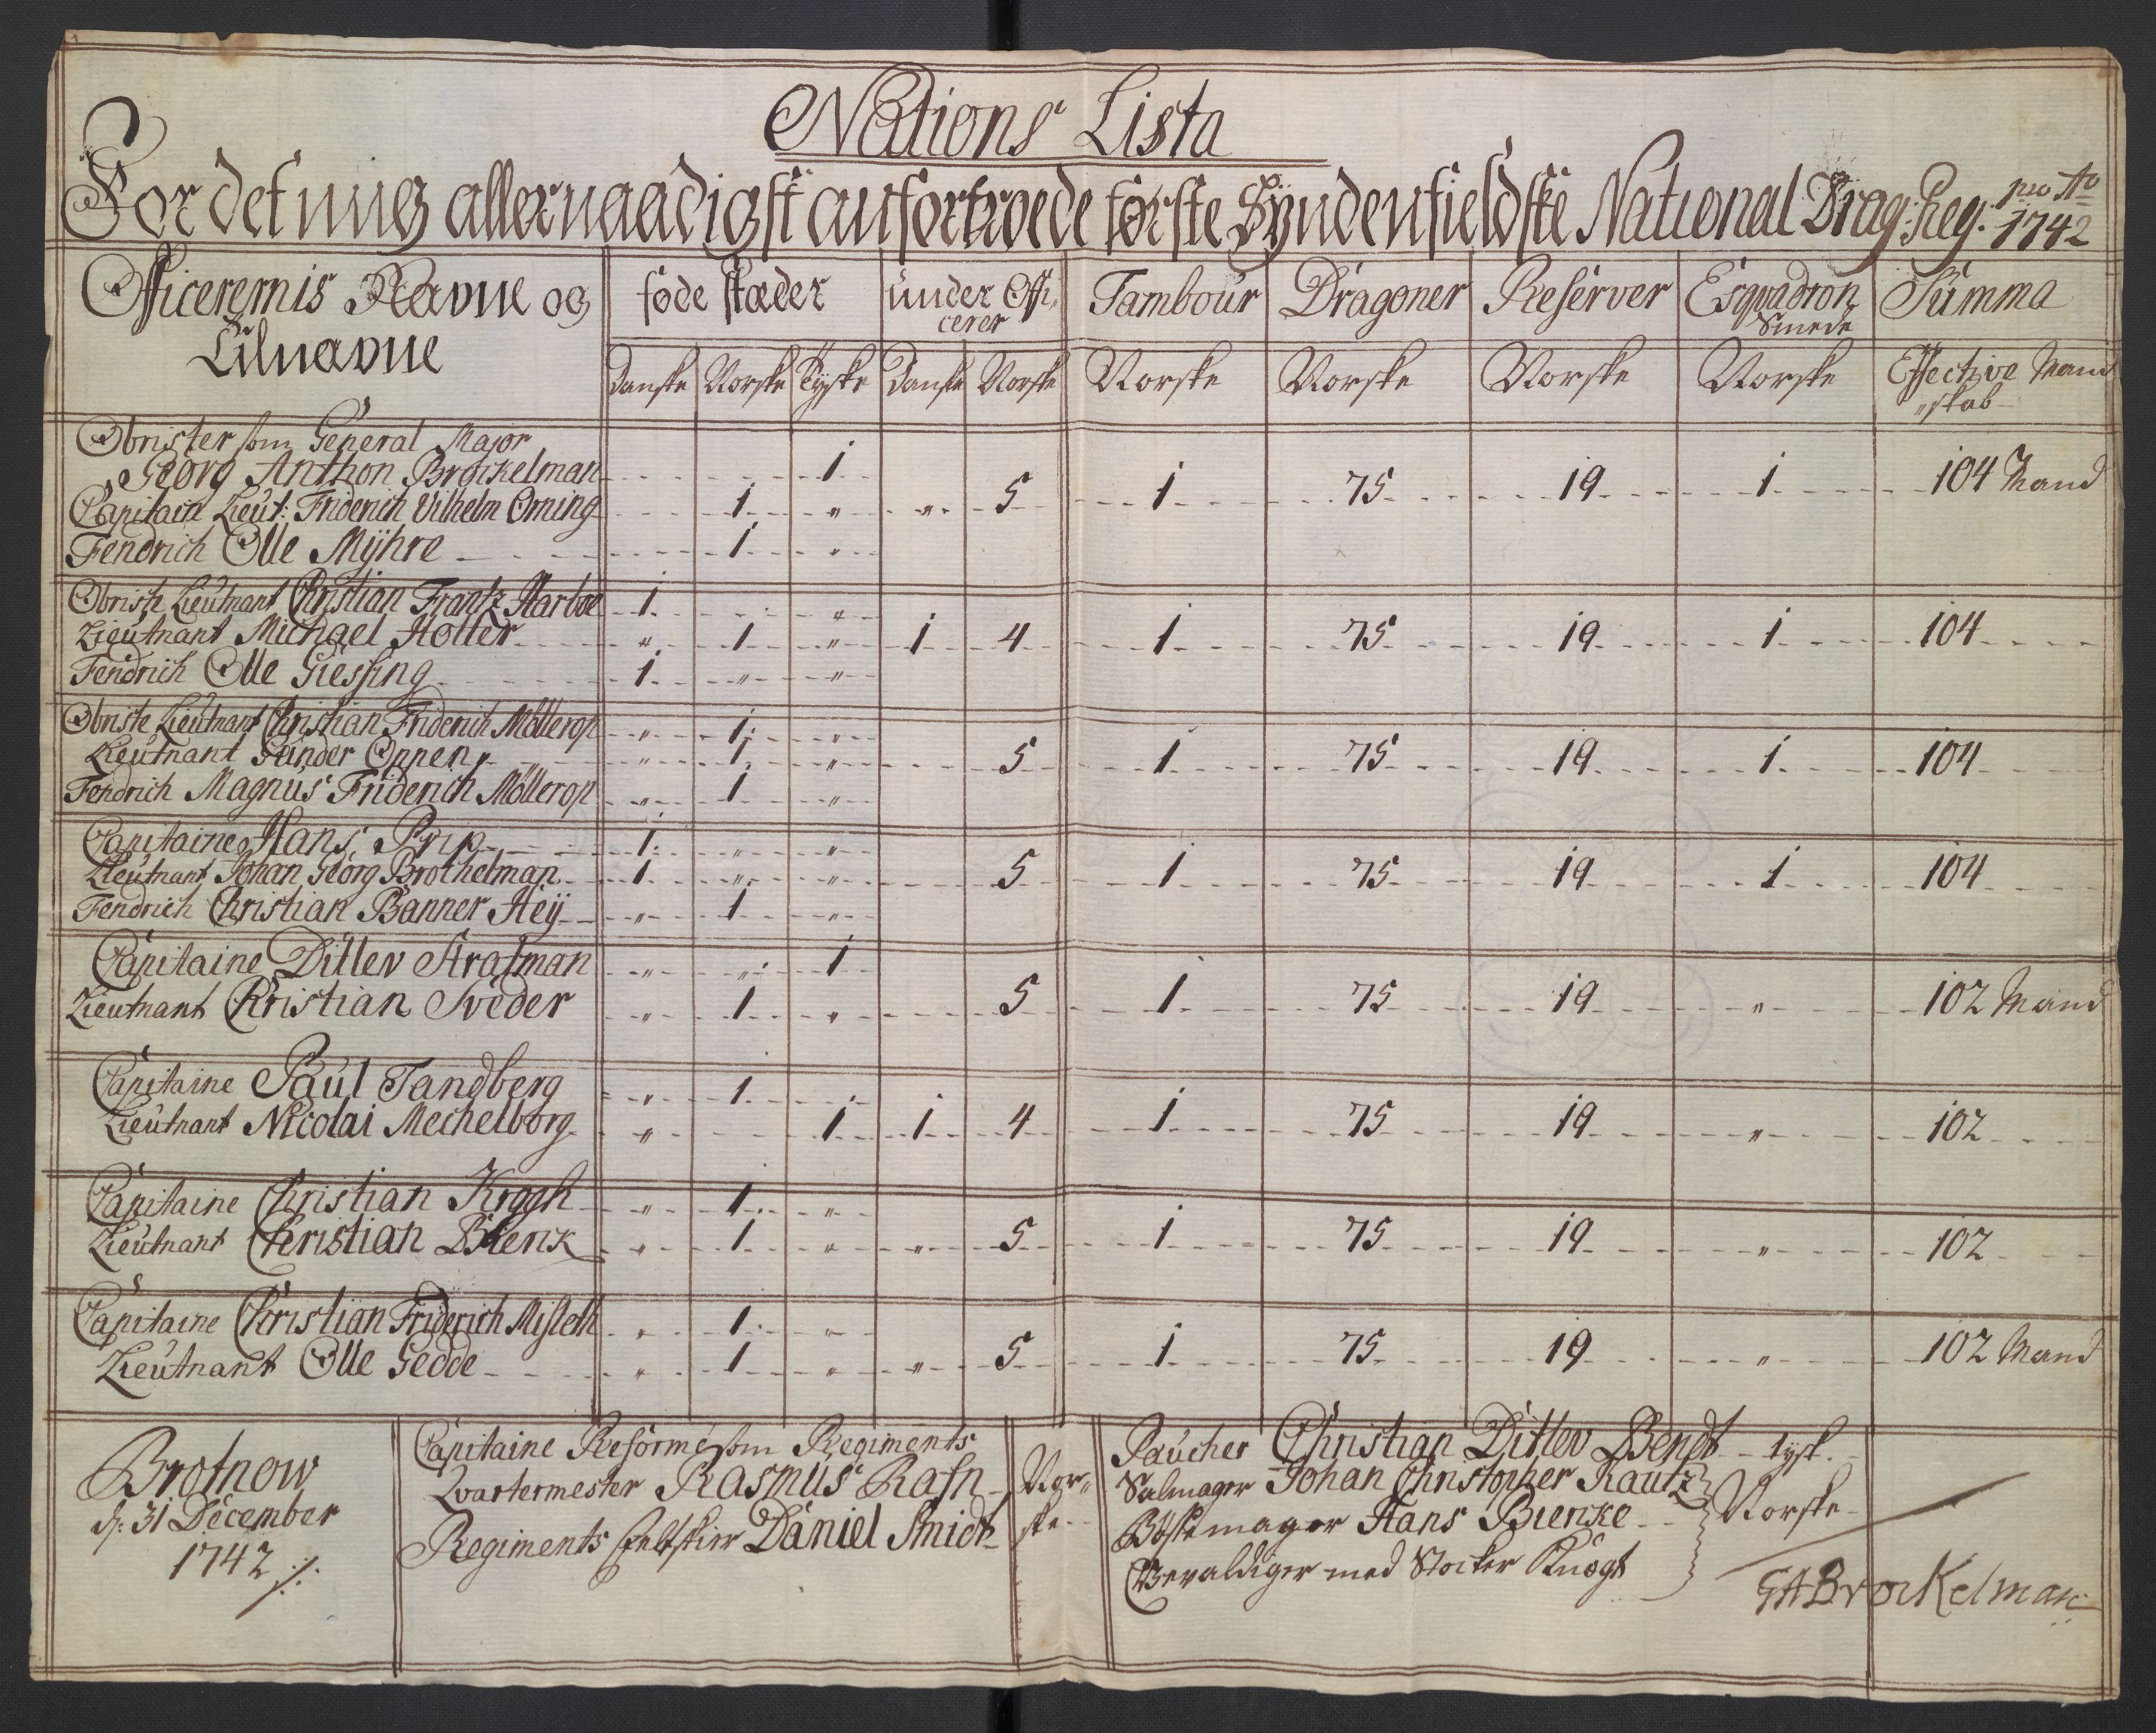 Nations Lista
For det mig allernaadigst anfortroede første Syndenfieldske National Drag: Reg: pro Ao 1742
Officerernis Navne og Tilnavne | føde stæder | under Officerer | Tambour | Dragoner | Reserver | Esqvadron Smede | Summa
Danske | Norske | Tyske | Danske | Norske | Norske | Norske | Norske | Norske | Effective Mandskab
Obrister som General Major
Georg Anthon Brockelman 1
5 1 75 19 1 104 Mand
Capitain Lieut: Friderich Vilhelm Orning 1 " "
Fendrich Olle Mÿhre 1 "
Obrist Lieutnant Christian Frantz Harboe 1 "
Lieutnant Michael Holter " 1 " 1 4 1 75 19 1 104
Fendrich Olle Giessing 1 " "
Obriste Lieutnant Christian Friderich Møllerop " 1 "
Lieutnant Gunder Oppen " 1 " 5 1 75 19 1 104
Fendrich Magnus Friderich Møllerop " 1 "
Capitaine Hans Prip 1 " "
Lieutnant Johan Georg Brothelman 1 " " 5 1 75 19 1 104
Fendrich Christian Banner Heÿ " 1 "
Capitaine Ditlev Stratman " " 1
Lieutnant Christian Sveder " 1 " 5 1 75 19 " 102 Mand
Capitaine Paul Tandberg " 1
Lieutnant Nicolai Mechelborg " 1 1 4 1 75 19 " 102
Capitaine Christian Kragh " 1 "
Lieutnant Christian Blienk " 1 " " 5 1 75 19 " 102
Capitaine Christian Friderich Misleth " 1 "
Lieutnant Olle Gedde " 1 " " 5 1 75 19 " 102 Mand
Brotnow
d: 31 December
1742
Capitaine Reformé som Regiments
Qvartermester Rasmus Rafn
Regiments Feltskier Daniel Smidt
Norske
Paucher Christian Ditlev Bendt - tysk.
Salmager Johan Christopher Rautz
Bøssemager Hans Bienke
Gevaldiger med Stocker Knegt
Norske
GABrockelman